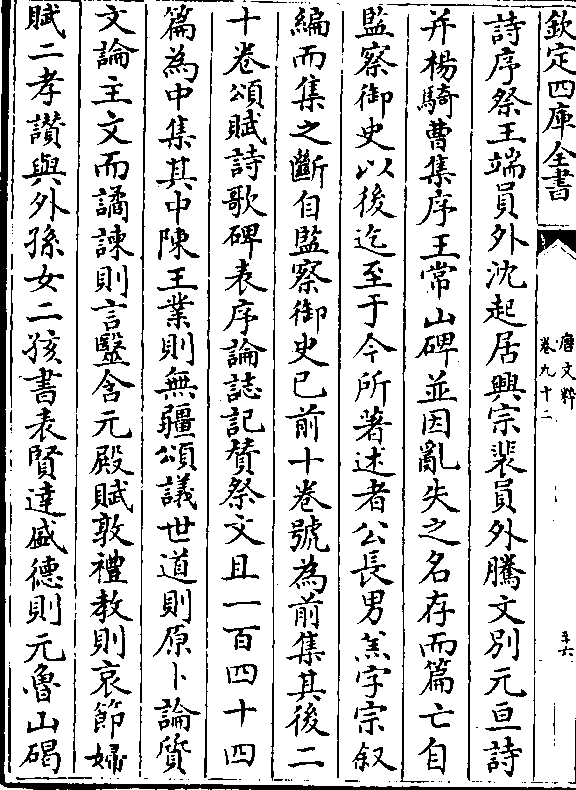 欽定四庫全書
唐文粹
卷九十二
詩序祭王端員外沈起居興宗裴員外騰文別元亘詩
并楊騎曹集序王常山碑並因亂失之名存而篇亡自
監察御史以後迄至于今所著述者公長男羔字宗叙
編而集之斷自監察御史已前十卷號為前集其後二
十卷頌賦詩歌碑表序論誌記贊祭文且一百四十四
篇為中集其中陳王業則無疆頌議世道則原卜論質
文論主文而譎諫則言毉含元殿賦敦禮教則哀節婦
賦二孝讃與外孫女二孩書表賢達盛德則元魯山碣